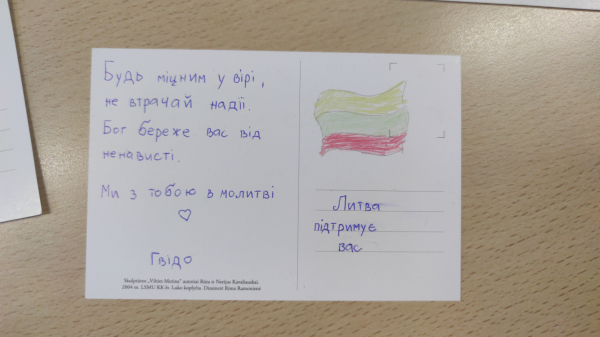 Будь міцним у вірі,
не втрачай надії.
Бог береже вас від
ненависті.
Ми з тобою в молитві
Гвідо
Skulptūros „Vilties Motina" autoriai Rūta ir Nerijus Kavaliauskai
2004 m. LSMU KK šv. Luko koplyčia. Dizainerė Rima Ramonienė
Литва
підтримує
вас